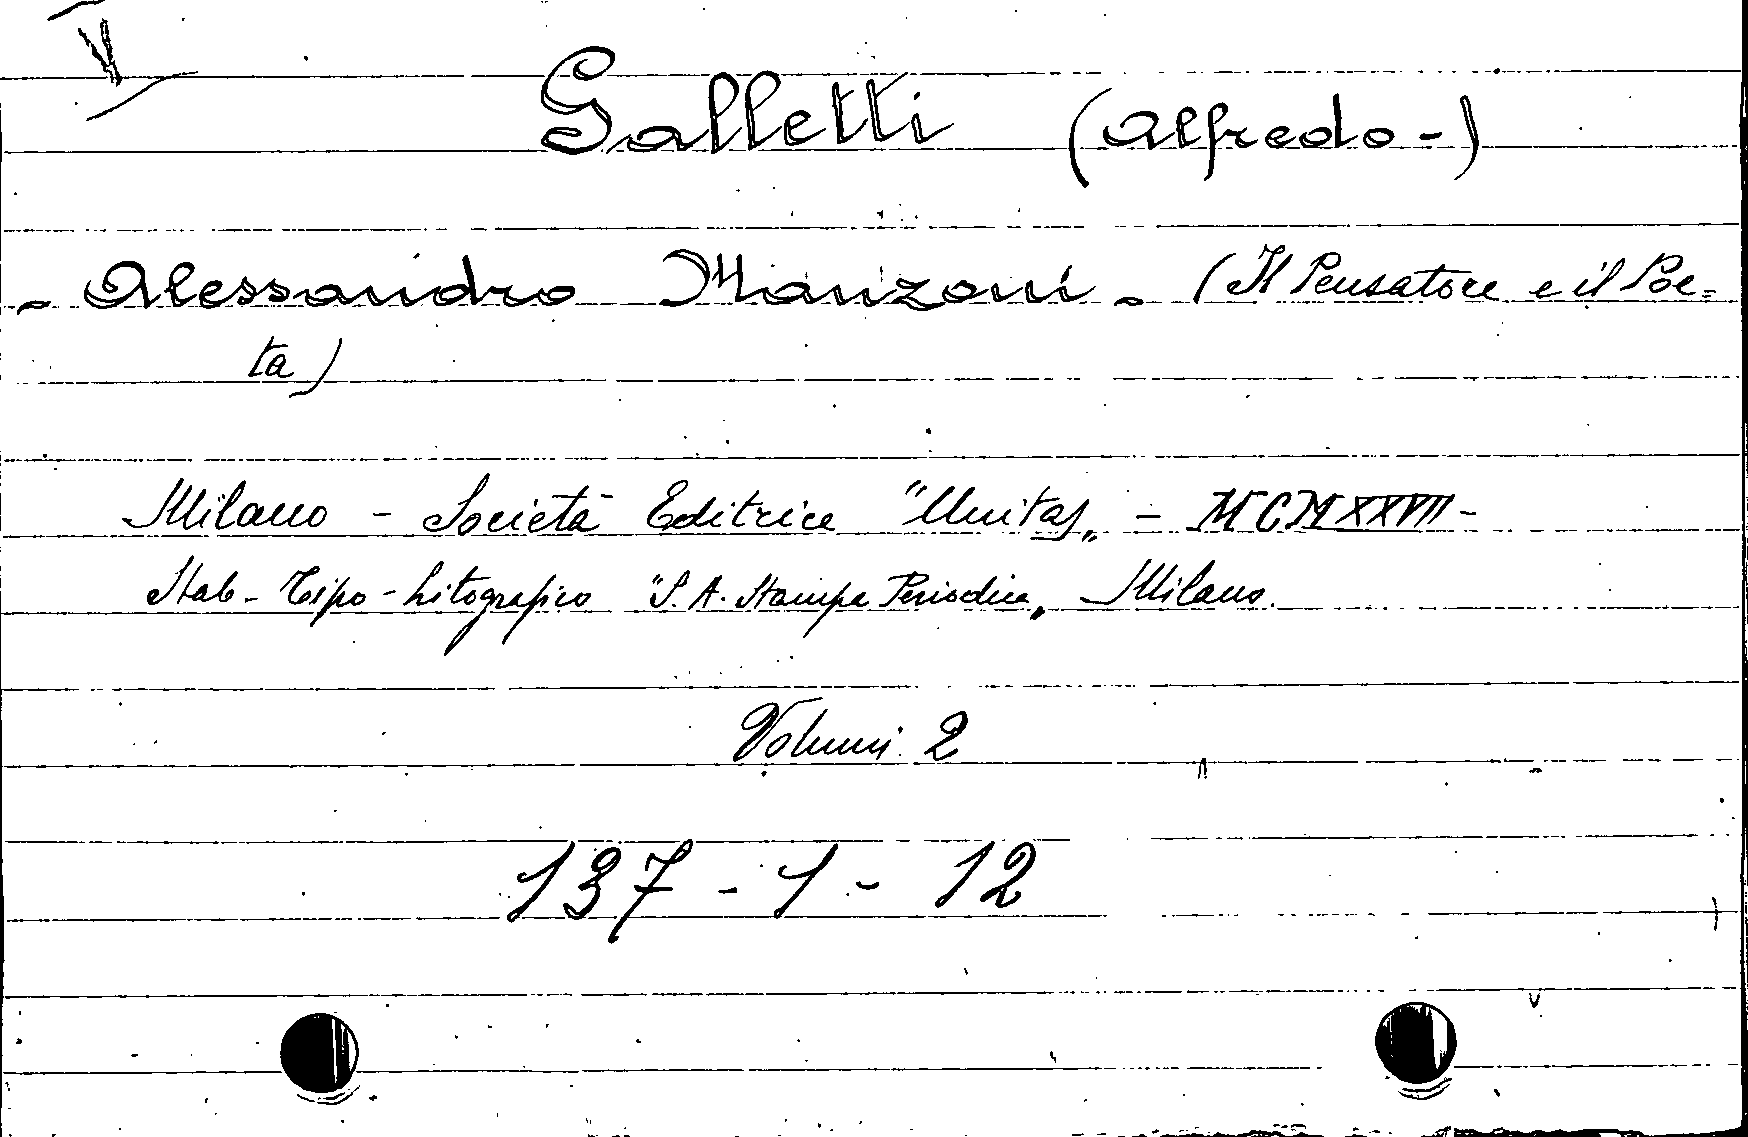 Galletti (Alfredo -)
- Alessandro Manzoni - (Il Pensatore e il Poe=
ta)
Milano - Società Editrice "Unitas„ - MCMXXVII -
Stab - Tipo - Litografico "S. A. Stampa Periodica„ Milano.
Volumi 2
137 - 1 - 12